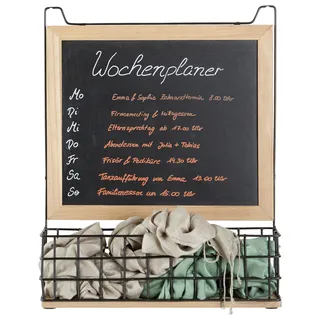 Wochenplaner
Mo Emma & Sophie Zahnarzttermin 8.00 Uhr
Di Firmenmeeting & Mittagessen
Mi Elternsprechtag ab 17.00 Uhr
Do Abendessen mit Julia + Tobias
Fr Frisör & Pediküre 14.30 Uhr
Sa Tanzaufführung von Emma 19.00 Uhr
So Familienessen um 15.00 Uhr